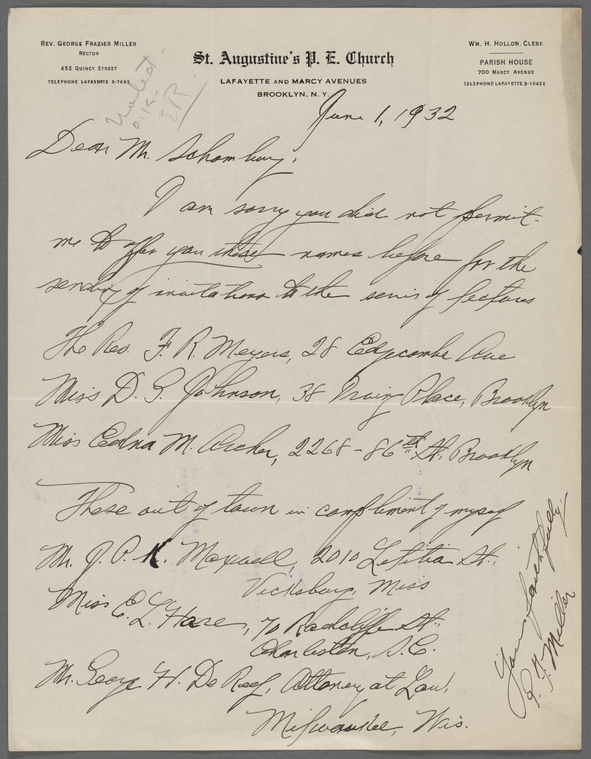 Rev. George Frazier Miller
Rector
452 Quincy Street
Telephone Lafayette 3-7663
St. Augustine's P. E. Church
Lafayette and Marcy Avenues
Brooklyn, N. Y.
Wm. H. Hollon, Clerk
Parish House
700 Marcy Avenue
Telephone Lafayette 3-10422
Noted
O.K.
ER.
June 1, 1932
Dear Mr. Schomburg,
I am sorry you did not permit
me to offer you these names before for the
sending of invitations to the series of lectures
The Rev. F. R. Meyers, 28 Edgecombe Ave
Miss D. S. Johnson, 38 Irving Place, Brooklyn
Miss Edna M. Archer, 2268-86th St. Brooklyn
These out of town in compliment of myself
Mr. J. P. K. Maxwell, 2010 Letitia St.,
Vicksburg, Miss
Miss E. L. Hare, 70 Radcliffe St.
Charleston, S.C.
Mr. George H. DeReef, Attorney at Law,
Milwaukee, Wis.
Yours faithfully
G. F. Miller